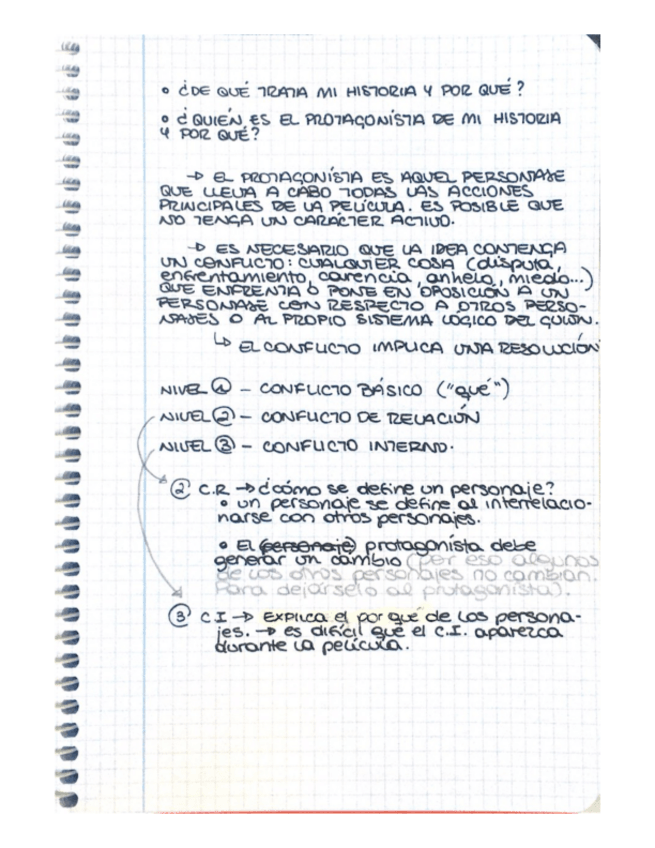 • ¿DE QUÉ TRATA MI HISTORIA Y POR QUÉ?
• ¿QUIÉN ES EL PROTAGONISTA DE MI HISTORIA
Y POR QUÉ?
→ EL PROTAGONISTA ES AQUEL PERSONAJE
QUE LLEVA A CABO TODAS LAS ACCIONES
PRINCIPALES DE LA PELÍCULA. ES POSIBLE QUE
NO TENGA UN CARÁCTER ACTIVO.
→ ES NECESARIO QUE LA IDEA CONTENGA
UN CONFLICTO: CUALQUIER COSA (disputa,
enfrentamiento, carencia, anhelo, miedo...)
QUE ENFRENTA O PONE EN OPOSICIÓN A UN
PERSONAJE CON RESPECTO A OTROS PERSO-
NAJES O AL PROPIO SISTEMA LÓGICO DEL GUION.
↳ EL CONFLICTO IMPLICA UNA RESOLUCIÓN
NIVEL ① - CONFLICTO BÁSICO ("qué")
NIVEL ② - CONFLICTO DE RELACIÓN
NIVEL ③ - CONFLICTO INTERNO.
② C.R → ¿cómo se define un personaje?
• un personaje se define al interrelacio-
narse con otros personajes.
• El (personaje) protagonista debe
generar un cambio (per eso algunos
de los otros personajes no cambian.
Para dejárselo al protagonista).
③ C.I → EXPLICA el por qué de los persona-
jes. → es difícil que el C.I. aparezca
durante la película.